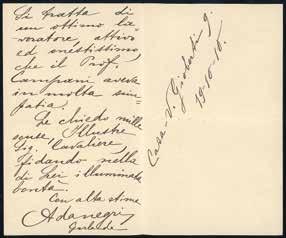 Si tratta di
un ottimo la-
voratore, attivo
ed onestissimo,
che il Prof.
Campani aveva
in molta sim-
patia.
Le chiedo mille
scuse, Illustre
Sig. Cavaliere,
fidando nella
di Lei illuminata
bontà.
Con alta stima
Ada Negri
Casa - V. Gioberti 9.
19-10-10.